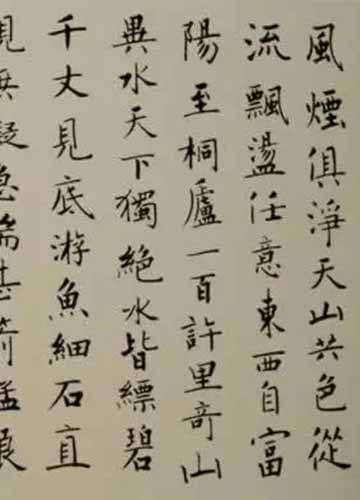 風煙俱淨天山共色從
流飄盪任意東西自富
陽至桐廬一百許里奇山
異水天下獨絶水皆縹碧
千丈見底游魚細石直
視無礙急湍甚箭猛浪